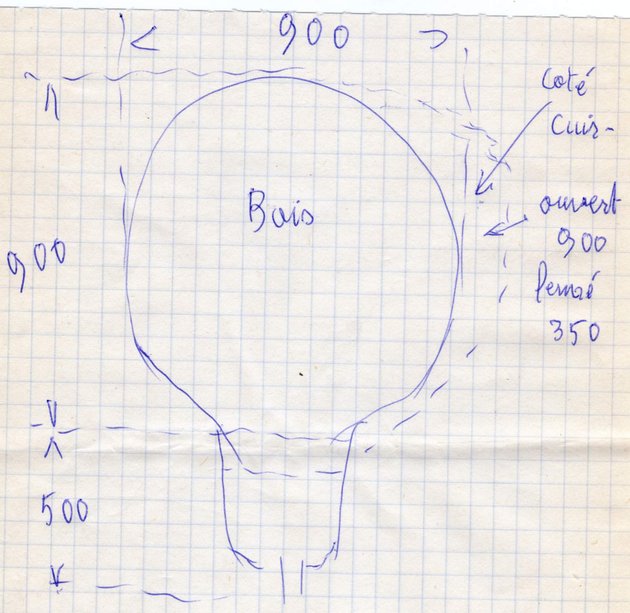 900
Coté
Cuir-
Bois
ouvert
900
900
fermé
350
500